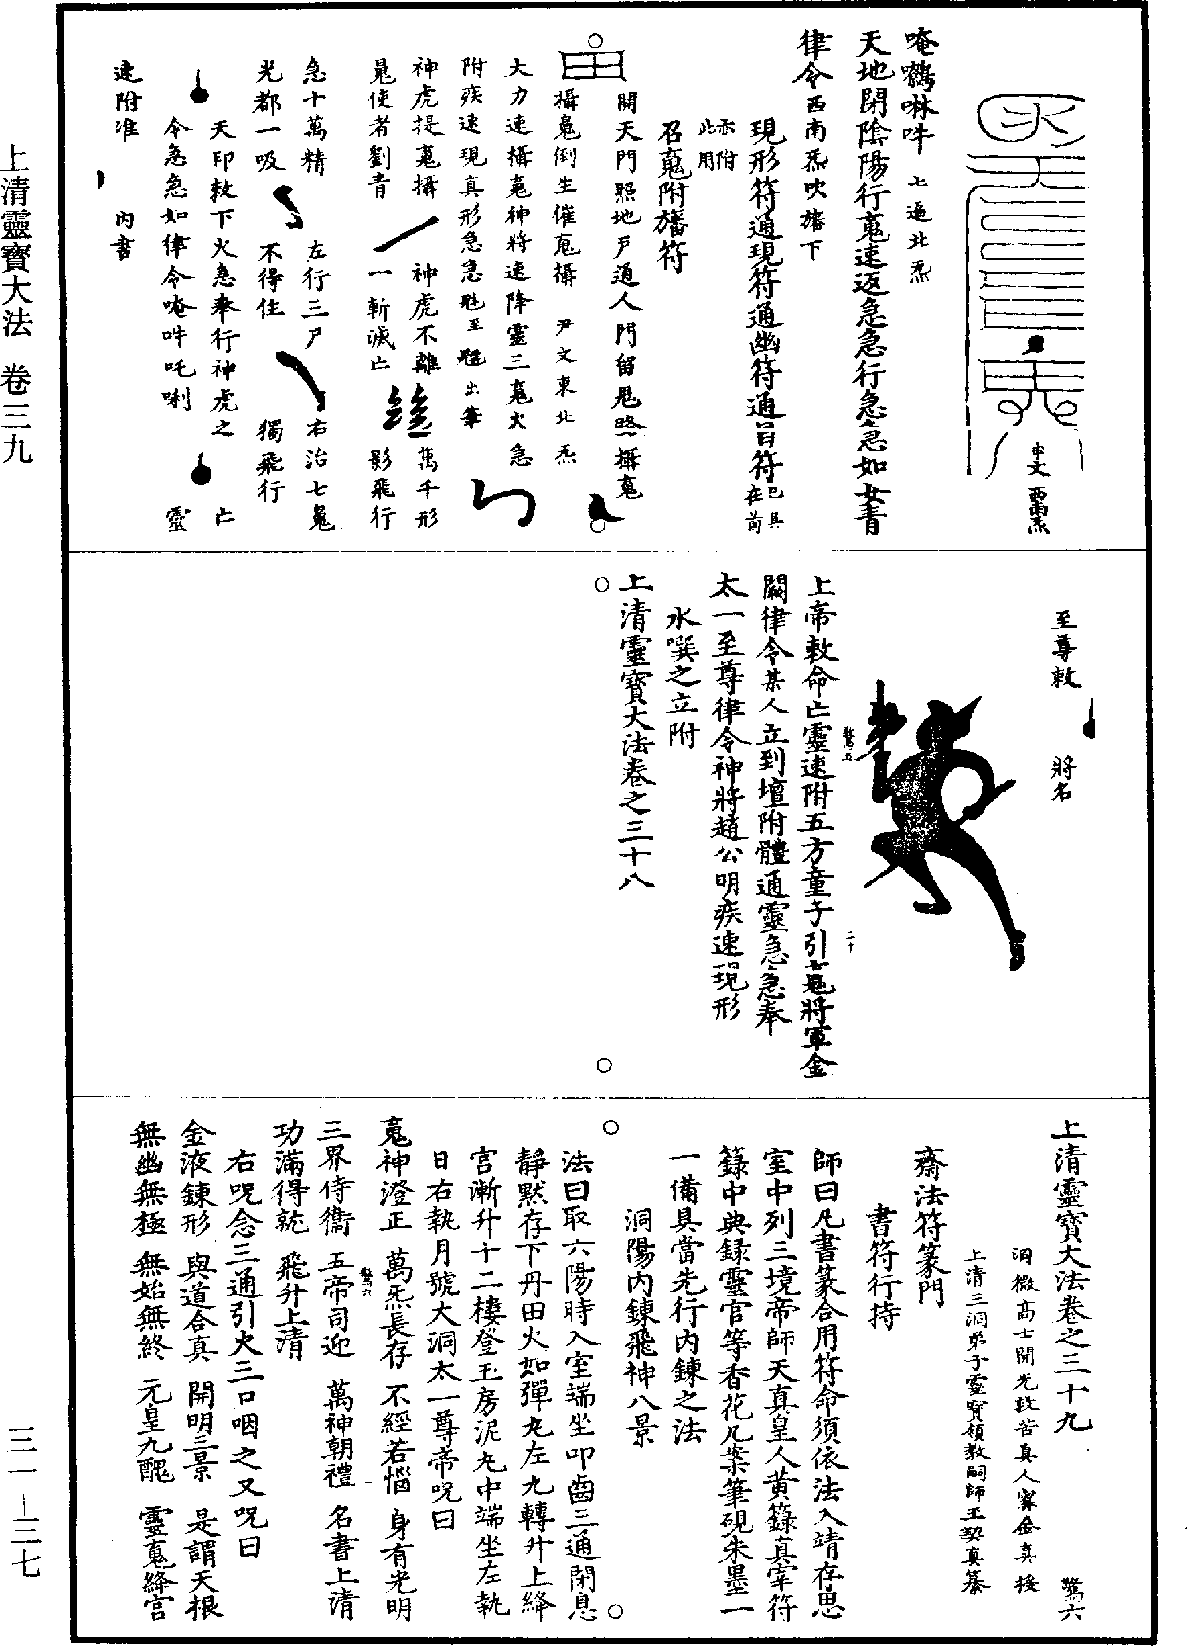 上清靈寶大法　卷三九
三一－三七
申文
唵鶴啉吽　七遍北炁
天地閉陰陽行䰟速返急急行急急如女青
律令西南炁吹旛下
現形符通現符通幽符通旨符已具在前
亦附此用
召䰟附旛符
開天門照地戶通人門留鬼路攝䰟
攝鬼倒生催鬼攝　尹文東北炁
大力速攝䰟神將速降靈三䰟火急
附疾速現真形急急
神虎提䰟攝　神虎不離　萬千形
鬼使者劉青　一斬滅亡　影飛行
急十萬精　左行三戶　右治七䰟
光都一吸　不得住　獨飛行
天印敕下火急奉行神虎之　亡
令急急如律令唵吽吒唎　靈
速附准　內書
至尊敕　將名
上帝敕命亡靈速附五方童子引七䰟將軍金
闕律令某人立到壇附體通靈急急奉
太一至尊律令神將趙公明疾速現形
水噀之立附
上清靈寶大法卷之三十八
鶩五
二十
上清靈寶大法卷之三十九　鶩六
洞微高士開光救苦真人甯全真授
上清三洞弟子靈寶領教嗣師王契真纂
齋法符篆門
書符行持
師曰凡書篆合用符命須依法入靖存思
室中列三境帝師天真皇人黃籙真宰符
籙中典錄靈官等香花几案筆硯朱墨一
一備具當先行內鍊之法
洞陽內鍊飛神八景
法曰取六陽時入室端坐叩齒三通閉息
靜默存下丹田火如彈丸左九轉升上絳
宮漸升十二樓登玉房泥丸中端坐左執
日右執月號大洞太一尊帝咒曰
䰟神澄正　萬炁長存　不經若惱　身有光明
三界侍衛　五帝司迎　萬神朝禮　名書上清
功滿得就　飛升上清
鶩六
右咒念三通引火三口咽之又咒曰
金液鍊形　與道合真　開明三景　是謂天根
無幽無極　無始無終　元皇九醜　靈䰟絳宮